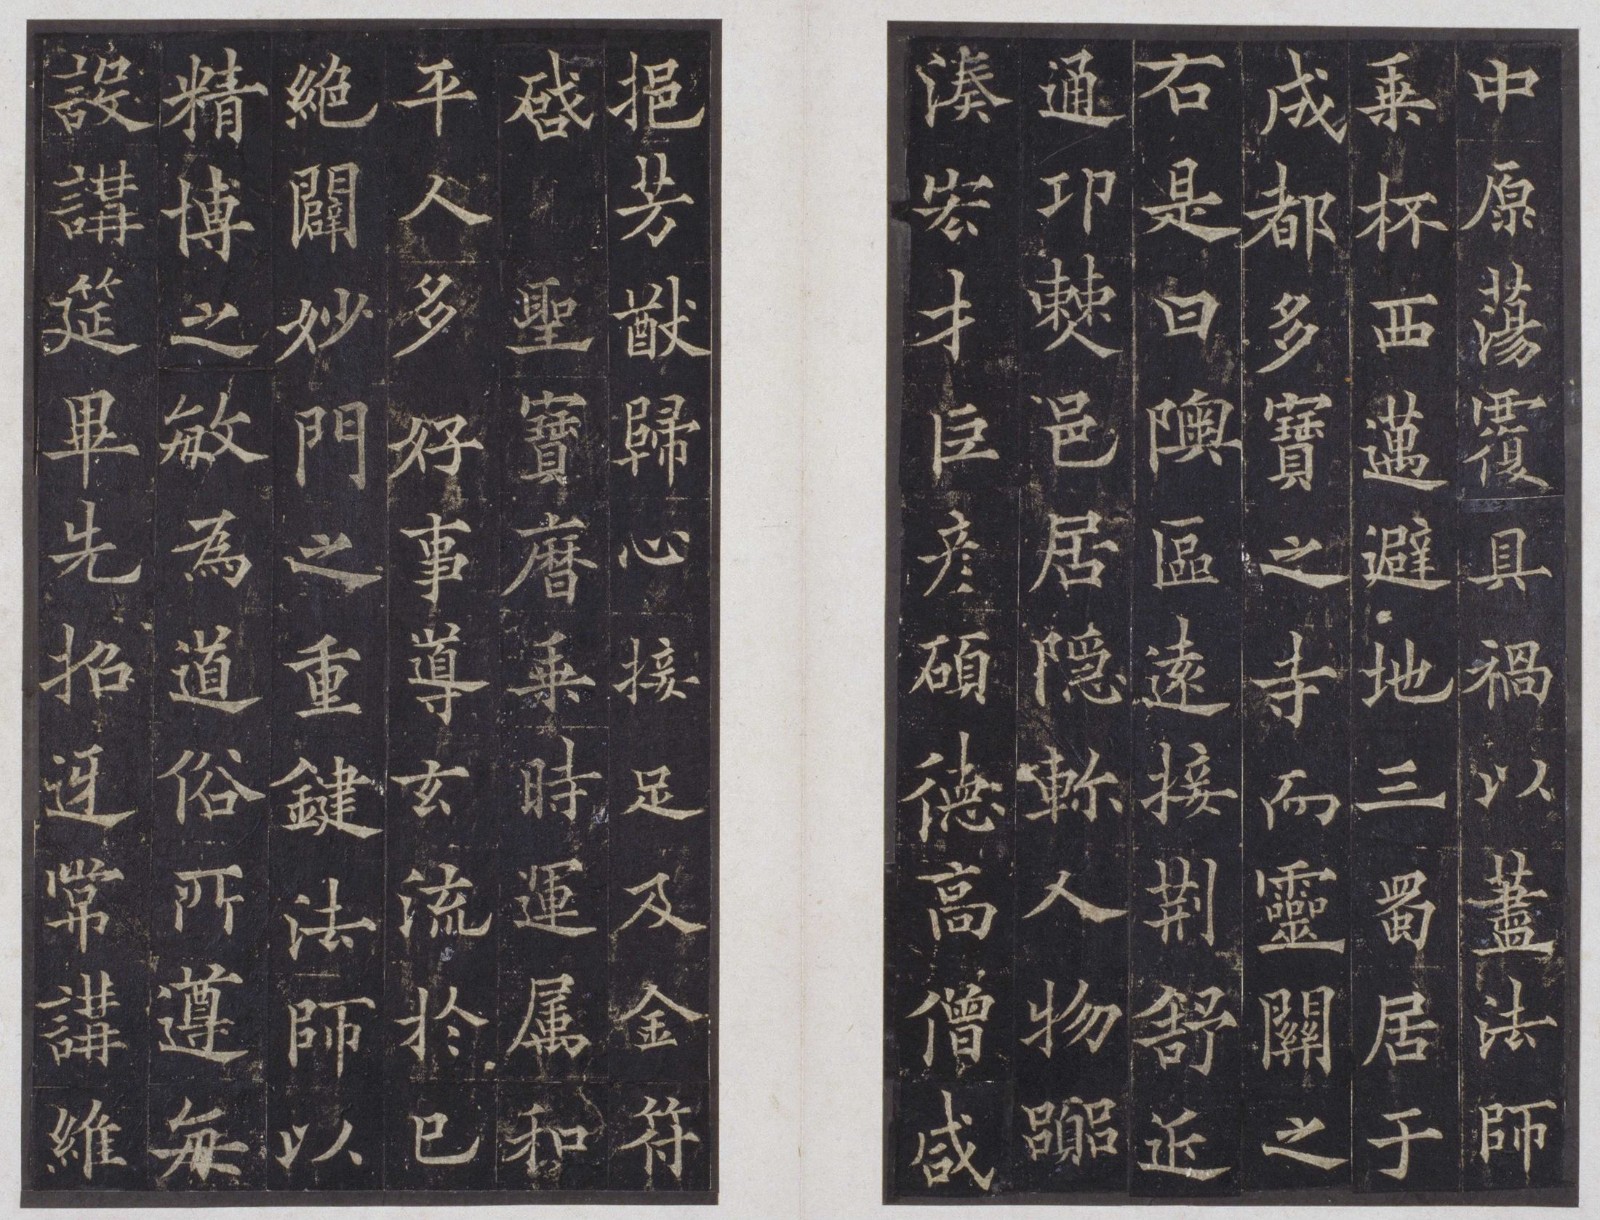 中原蕩覆具禍以藎法師
乗杯西邁避地三蜀居于
成都多寶之寺而靈關之
右是曰隩區遠接荆舒近
通邛僰邑居隠軫人物躧
湊宏才巨彦碩德高僧咸
挹芳猷歸心接足及金符
啓聖寶曆乗時運属和
平人多好事導玄流於已
絶闢妙門之重鍵法師以
精博之敏為道俗所遵每
設講筵畢先招迓常講維